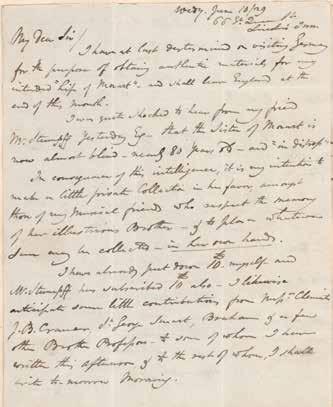 Wedy. June 10/29
66 Gt. Queen St.
Lincolns Inn
My Dear Sir/
I have at last determined on visiting Germany
for the purpose of obtaining authentic materials for my
intended life of Mozart. and shall leave England at the
end of this month.
I was quite shocked to hear from my friend
Mr. Stumpff Yesterday Eg - that the Sister of Mozart is
now almost blind - nearly 80 Years old - and "in distress"
In consequence of this intelligence, it is my intention to
make a little private Collection in her favor amongst
those of my Musical friends who respect the memory
of her illustrious Brother - & to place whatever
Sum may be collected - in her own hands.
I have already put down myself and
Mr. Stumpff has subscribed also - I likewise
anticipate some little contributions from Messrs. Clementi
J. B. Cramer, Sr. George Smart, Braham & a few
other Brother Professors - to some of whom I have
written this afternoon & to the rest of whom, I shall
write to-morrow Morning.